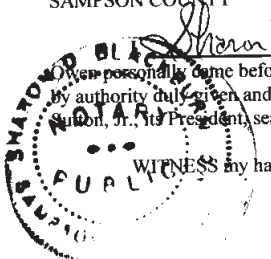 SAMPSON COUNTY
Sharon
Owen personally came befo
by authority duly given and
Sutton, Jr., its President, sea
WITNESS my ha
SHARON D BLACKBURN
NOTARY
PUBLIC
SAMPSO